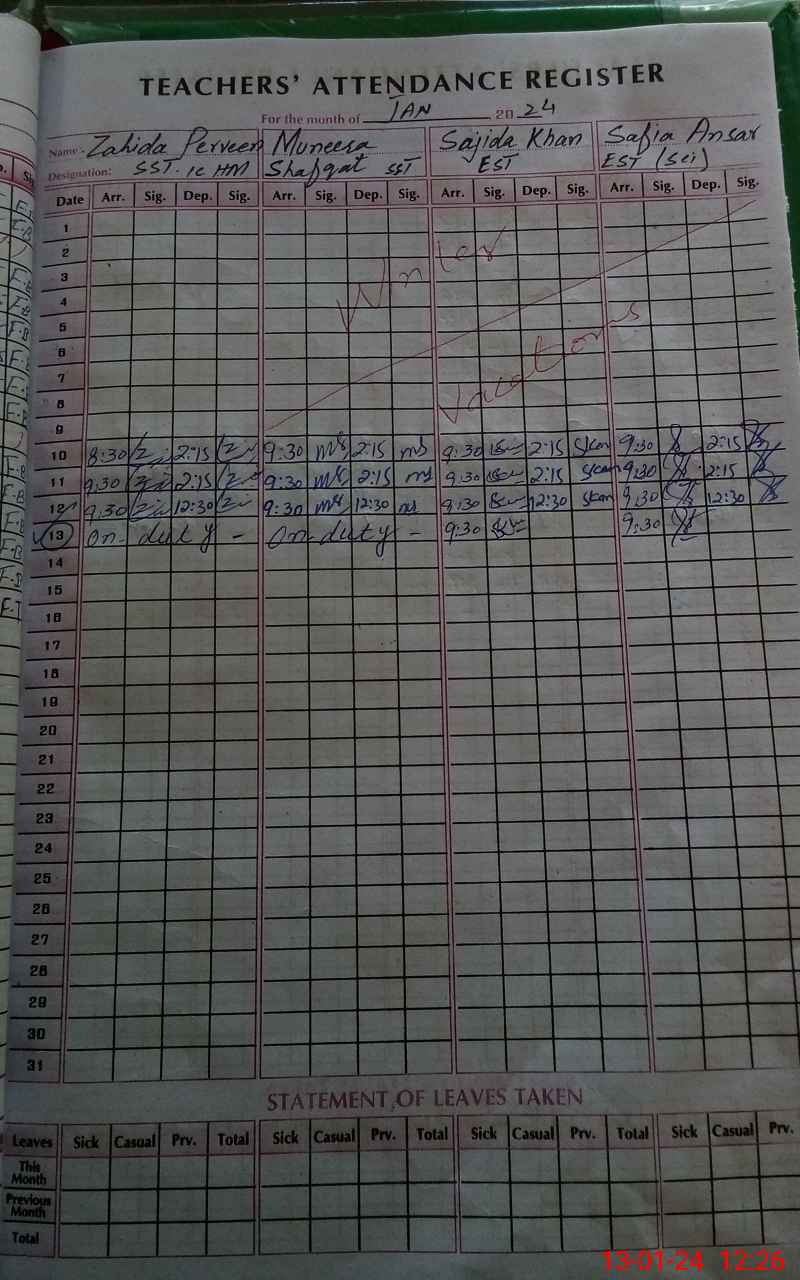 TEACHERS' ATTENDANCE REGISTER
For the month of JAN 20 24
Name:- Zahida Perveen Muneesa Sajida Khan Safia Ansar
Designation: SST. IC HM Shafqat SST EST EST (Sci)
Date Arr. Sig. Dep. Sig. Arr. Sig. Dep. Sig. Arr. Sig. Dep. Sig. Arr. Sig. Dep. Sig.
1
2
3
4
5
6
7
8
9
Winter
Vacations
10 8:30 2:15 9:30 ms 2:15 ms 9:30 2:15 Skan 9:30 2:15
11 9:30 2:15 9:30 ms 2:15 ms 9:30 2:15 Skan 9:30 2:15
12 9:30 12:30 9:30 ms 12:30 ms 9:30 12:30 Skan 9:30 12:30
13 On duty - On duty - 9:30 9:30
14
15
16
17
18
19
20
21
22
23
24
25
26
27
28
29
30
31
STATEMENT OF LEAVES TAKEN
Leaves Sick Casual Prv. Total Sick Casual Prv. Total Sick Casual Prv. Total Sick Casual Prv.
This Month
Previous Month
Total
13-01-24 12:26